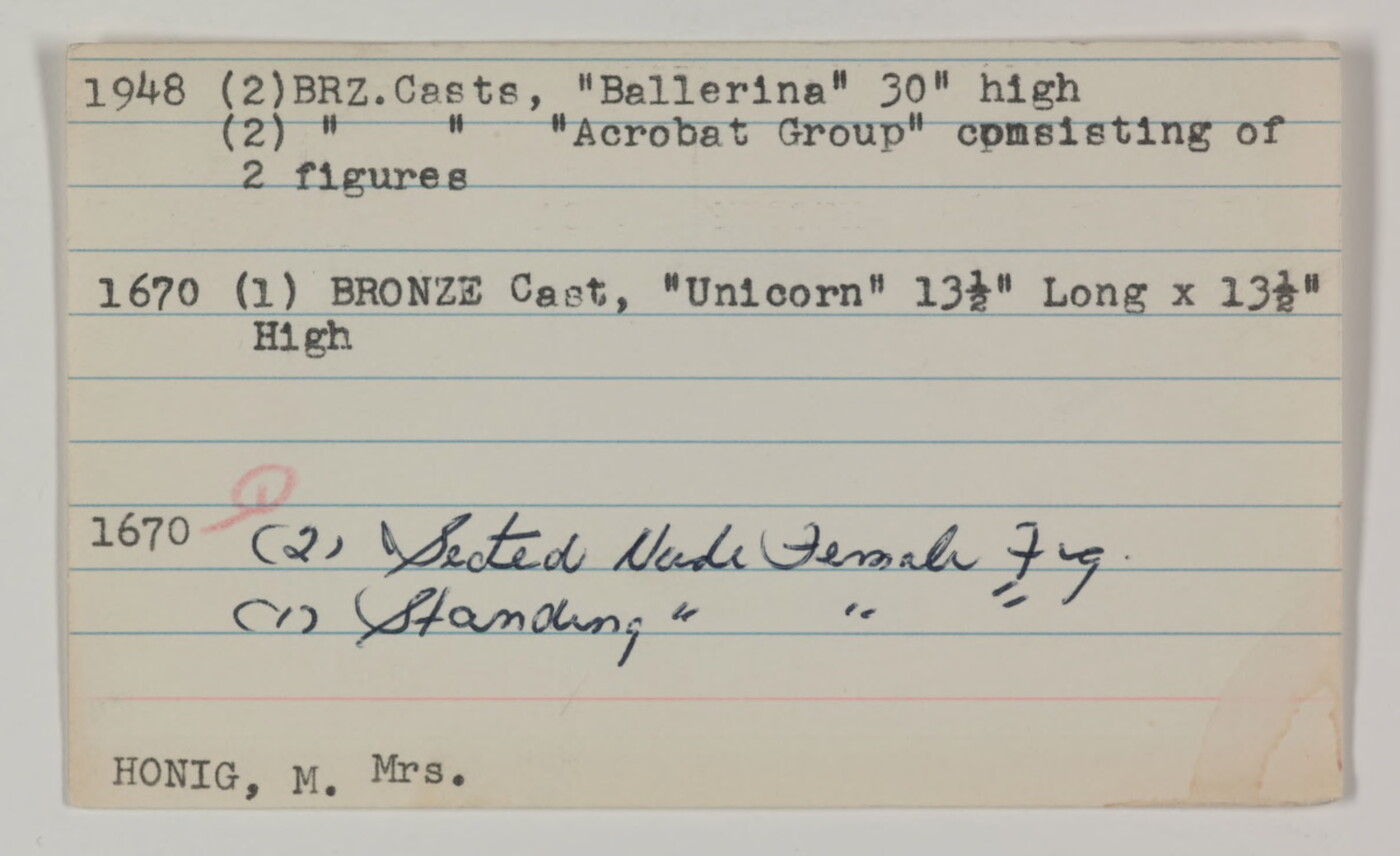 1948 (2)BRZ.Casts, "Ballerina" 30" high
(2) " " "Acrobat Group" cpmsisting of
2 figures
1670 (1) BRONZE Cast, "Unicorn" 13½" Long x 13½"
High
1
1670 (2) Seated Nude Female Fig.
(1) Standing " " "
HONIG, M. Mrs.